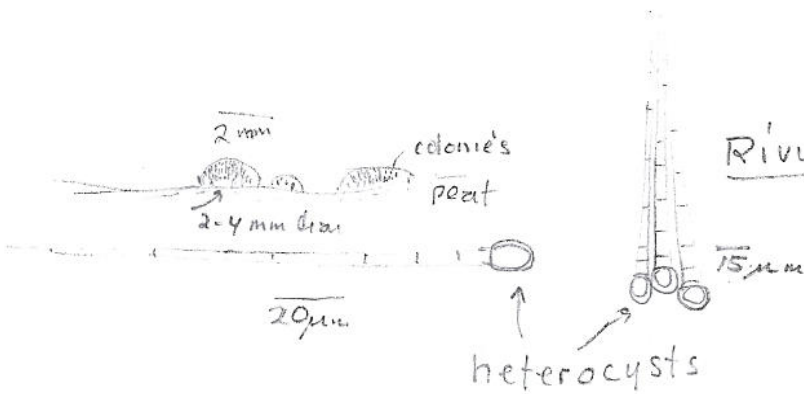 2 mm
colonies
peat
2-4 mm diam
20 µm
15 µm
heterocysts